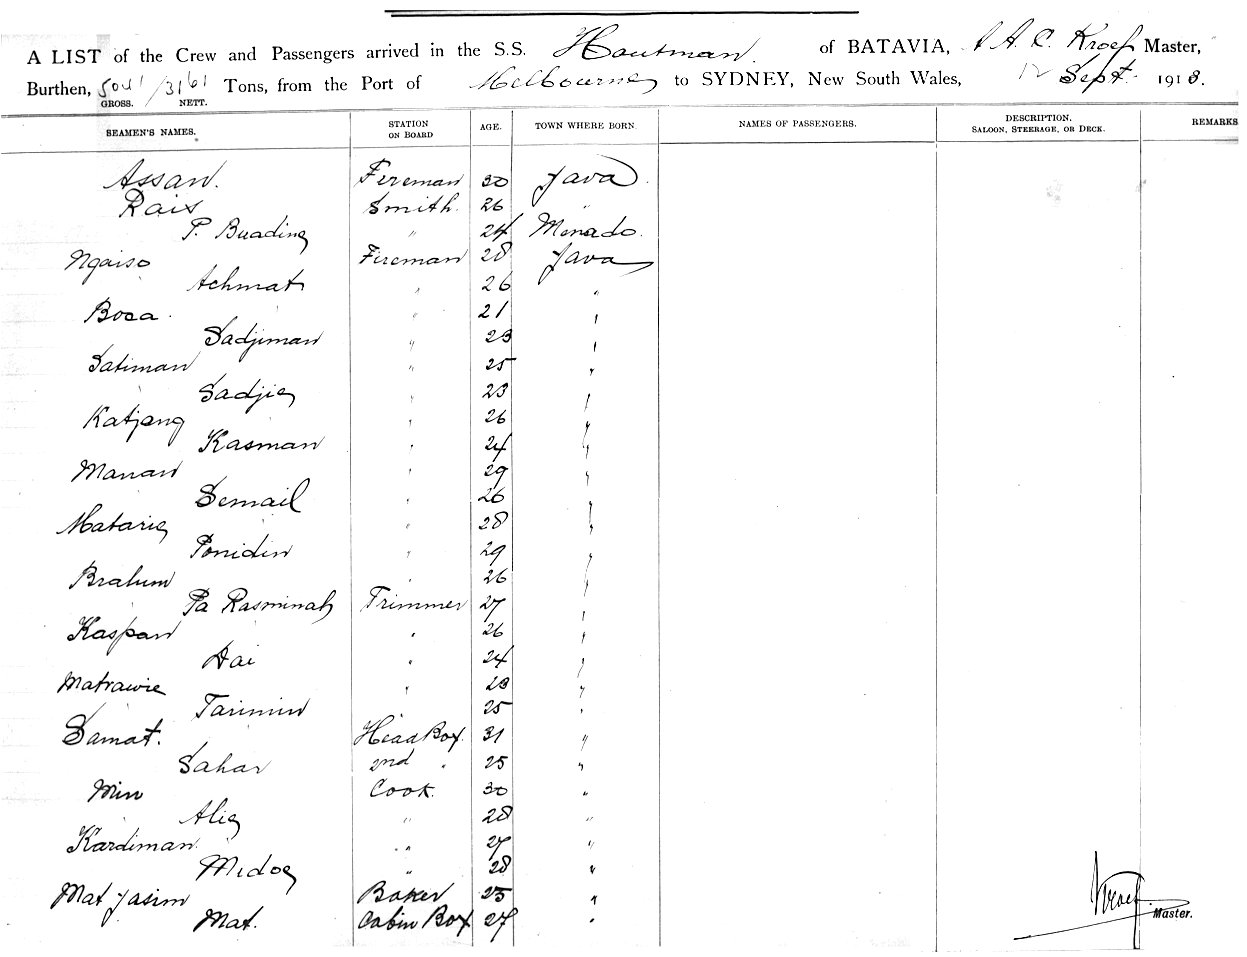 A LIST of the Crew and Passengers arrived in the S.S. Houtman of BATAVIA, A. C. Kroef Master,
Burthen, 5041 / 3161 Tons, from the Port of Melbourne to SYDNEY, New South Wales, 12 Sept. 1918.
GROSS. NETT.
SEAMEN'S NAMES. STATION ON BOARD AGE. TOWN WHERE BORN. NAMES OF PASSENGERS. DESCRIPTION. SALOON, STEERAGE, OR DECK. REMARKS
Assan. Fireman 30 Java
Rais Smith. 26 "
P. Buading " 24 Menado.
Ngaiso Fireman 28 Java
Achmat " 26 "
Bosa. " 21 "
Sadjiman " 23 "
Satiman " 25 "
Sadjie " 23 "
Katjang " 26 "
Kasman " 24 "
Manan " 29 "
Semail " 26 "
Matarie " 28 "
Ponidin " 29 "
Brahim " 26 "
Pa Rasminah Trimmer 27 "
Kaspan " 26 "
Dai " 24 "
Matrawie " 23 "
Tarimin " 25 "
Samat. Head Boy. 31 "
Sahar 2nd " 25 "
Min Cook. 30 "
Alie " 28 "
Kardiman. " 27 "
Midoe " 28 "
Mat Jasim Baker 25 "
Mat. Cabin Boy 27 "
Kroef Master.